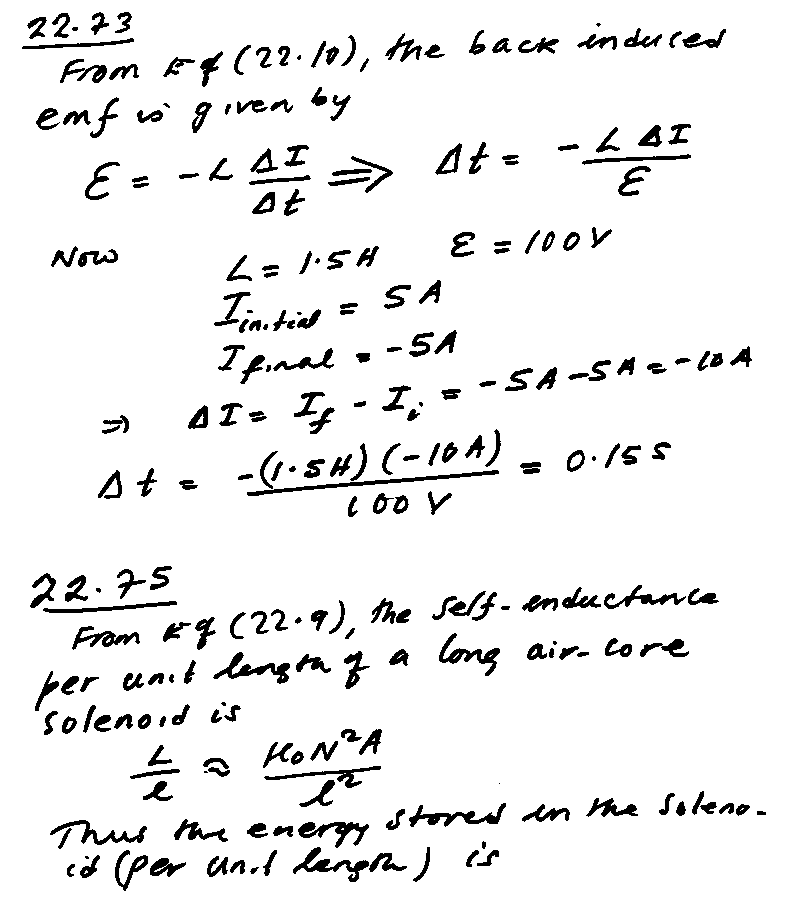 22.73
From Eq (22.10), the back induced
emf is given by
Ɛ = -L ΔI/Δt ⇒ Δt = -L ΔI/Ɛ
Now L = 1.5H Ɛ = 100V
I initial = 5A
I final = -5A
⇒ ΔI = I_f - I_i = -5A -5A = -10A
Δt = -(1.5H)(-10A)/100V = 0.15 s
22.75
From Eq (22.9), the self-inductance
per unit length of a long air-core
solenoid is
L/ℓ ≈ μ₀N²A/ℓ²
Thus the energy stored in the soleno-
id (per unit length) is